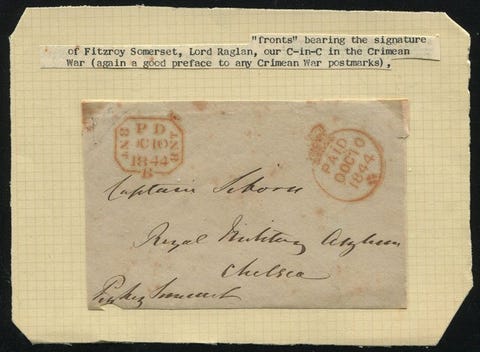 "fronts" bearing the signature
of Fitzroy Somerset, Lord Raglan, our C-in-C in the Crimean
War (again a good preface to any Crimean War postmarks),
PD
OC 10
1844
B
PAID
OC 10
1844
Captain Siborn
Royal Military Asylum
Chelsea
Somerset